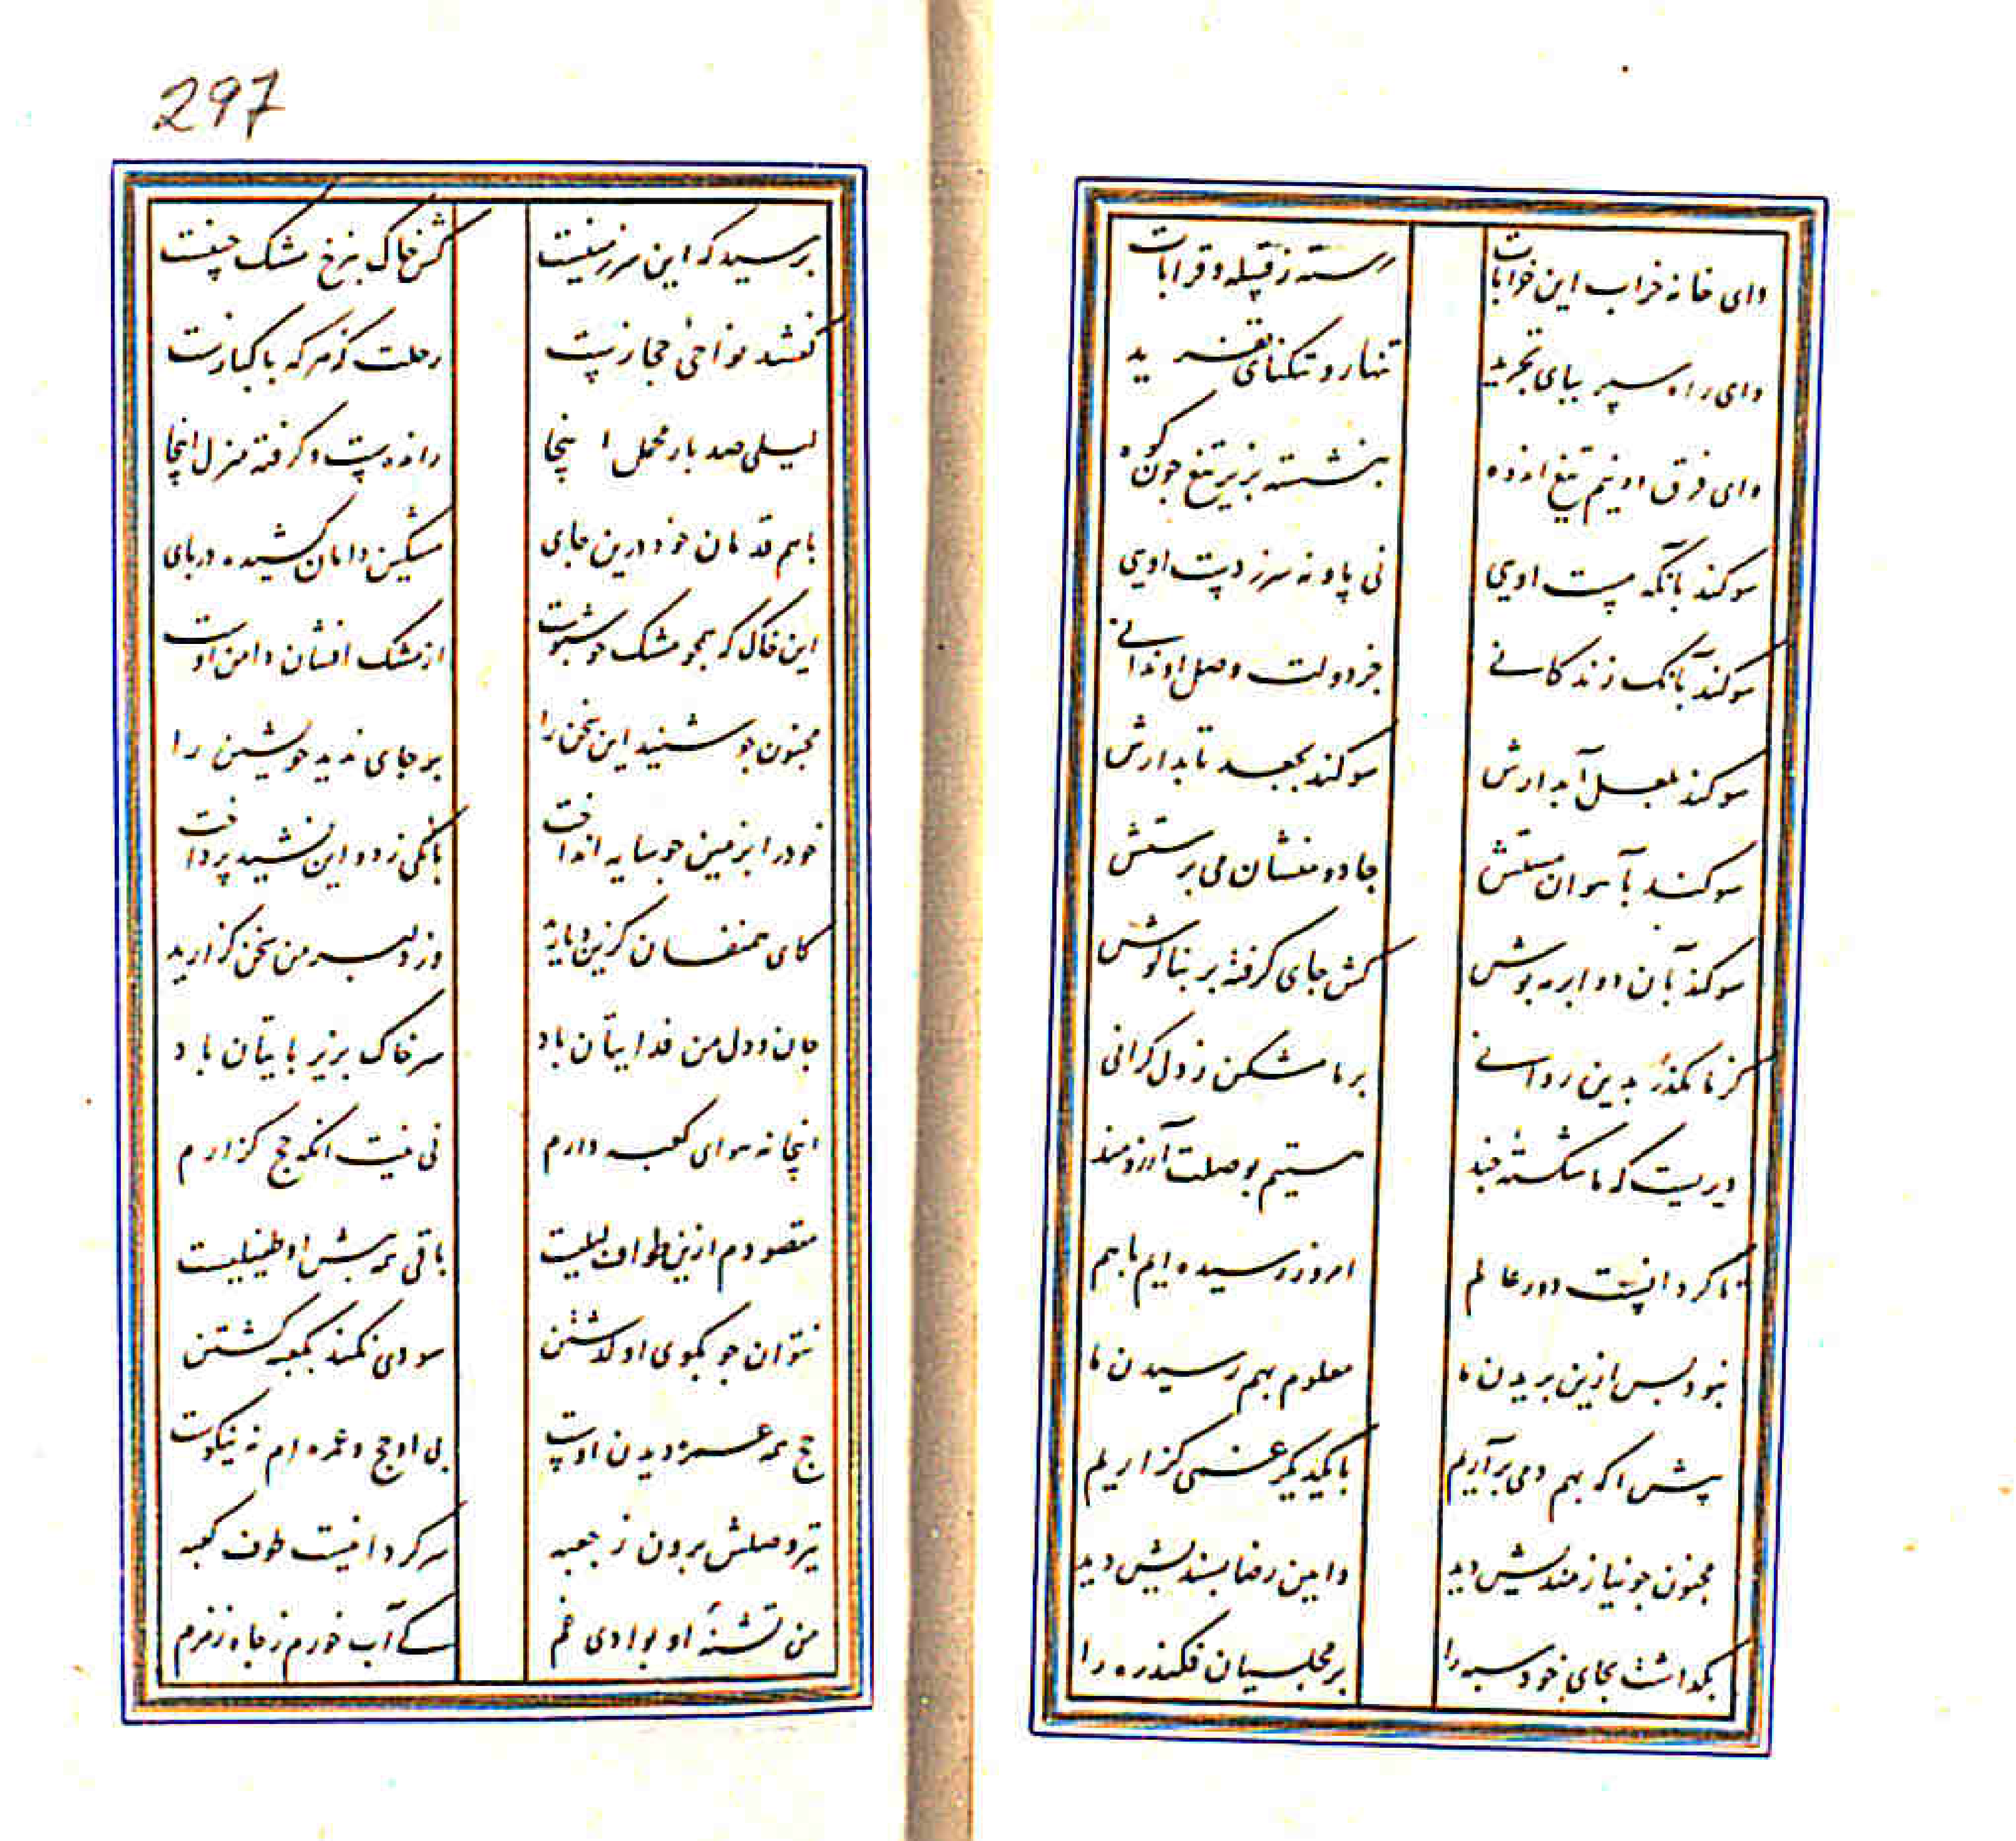 297
وای خانه خراب این خرابات رسته ز قبیله و قرابات
وای راه سپر بپای تجرید تنها رو تنکنای تفرید
وای فرق او نیم تیغ اندوه بنشسته بزیر تیغ چون کوه
سوکند بآنکه پست اویی نی پا و نه سر ز دست اویی
سوکند بآنک زندکانی جز دولت وصل او ندانی
سوکند بلعل آبدارش سوکند بجعد تابدارش
سوکند بآهوان مستش جادو منشان می پرستش
سوکند بآن دو ابر مه پوش کش جای کرفته بر بناکوش
کز ما مکذر بدین روانی بر ما مشکن ز دل کرانی
دیریست که ما شکسته چند هستیم بوصلت آرزومند
تا کرد انیست دور عالم امروز رسیده ایم با هم
نبود پس ازین بریدن ما معلوم بهم رسیدن ما
پیش آ که بهم دمی برآریم با یکدیکر غمی کزاریم
مجنون چو نیازمندیش دید و آیین رضا پسندیش دید
بکداشت بجای خود سیه را بر مجلسیان فکند ره را
پرسید که این سرزمین چیست کش خاک بنرخ مشک چینست
کفتند نواحی حجازست رحلت که هر که پاکبازست
لیلی صد بار محمل اینجا رانده است و کرفته منزل اینجا
با همقدمان خود درین جای مشکین دامان کشیده در پای
این خاک که همچو مشک خوشبوست از مشک افشان دامن اوست
مجنون چو شنید این سخن را بر جای ندید خویشتن را
خود را بزمین چو سایه انداخت بانکی زد و این نشید پرداخت
کای همنفسان کزین دیارید وز دلبر من سخن کزارید
جان و دل من فدایتان باد سر خاک بزیر پایتان باد
اینجا نه هوای کعبه دارم نی نیت آنکه حج کزارم
مقصودم ازین طواف لیلیست باقی همه پیش او طفیلیست
نتوان چو بکوی او کذشتن سودی نکند بکعبه کشتن
حج همه عمره دیدن اوست بی او حج و عمره ام نه نیکوست
تیر وصلش برون ز جعبه سرکردانیست طوف کعبه
من تشنهٔ او بوادی غم کی آب خورم ز چاه زمزم